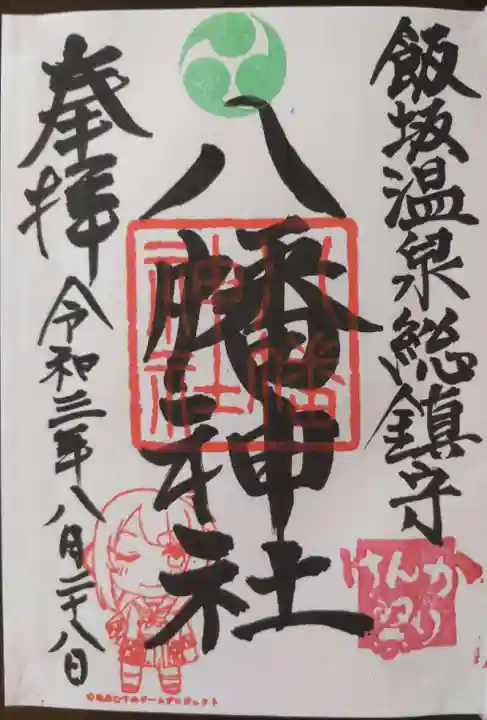 飯坂温泉総鎮守
八幡神社
八幡
神社
けんか
祭り
奉拝
令和三年八月二十八日
©温泉むすめゲームプロジェクト